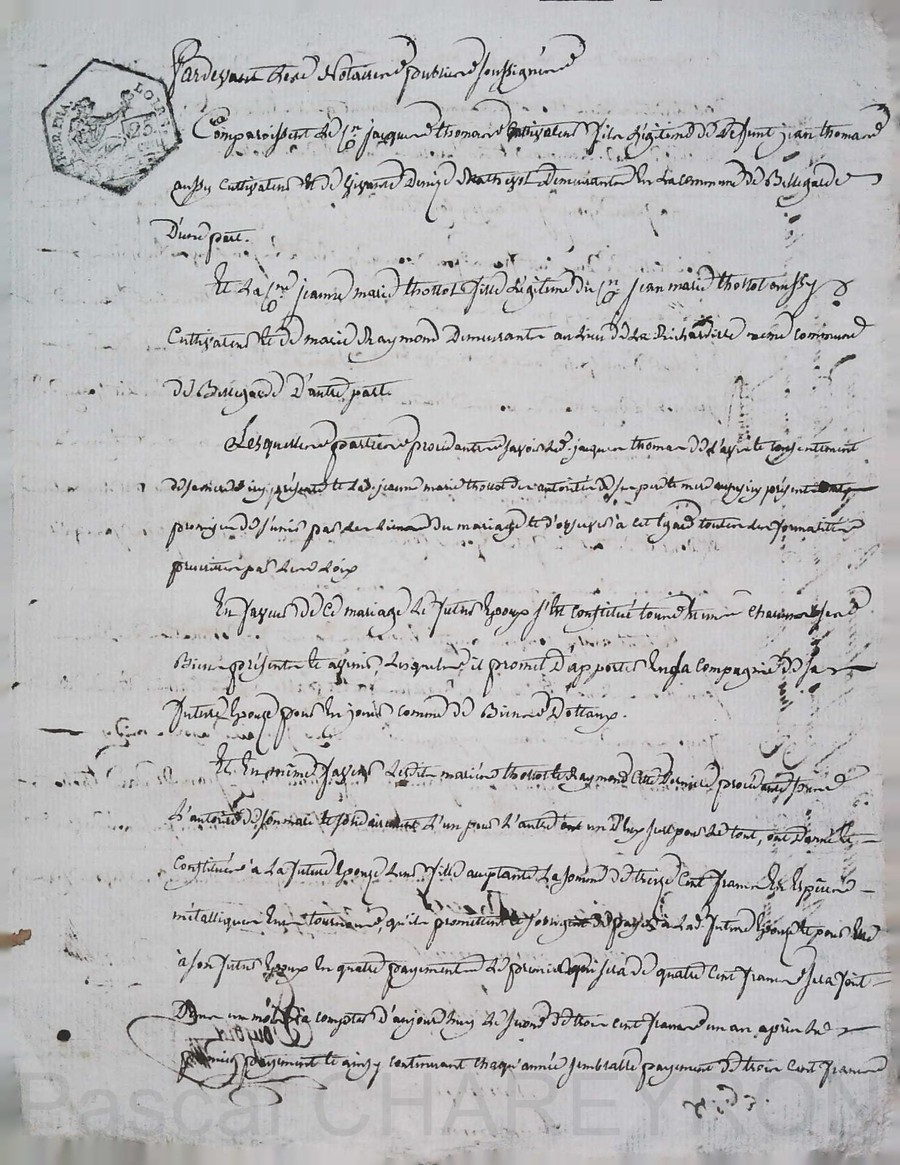 Pardevant Les Notaires publics soussignés
Comparoissent Le Cn jacques thomas Cultivateur fils Légitime de defunt jean thomas
aussy Cultivateur et de vivante Denize Demeurante en La Commune de Bellegarde
D'une part.
Et La Cne jeanne marie thollot fille Légitime du Cn jean marie thollot aussy
Cultivateur et de marie Raymond Demeurante au Lieu de La Richardière même commune
de Bellegarde D'autre part
Lesquelles parties procédantes savoir Led. jacques thomas de L'avis et consentement
de sa mère icy présente et Lad. jeanne marie thollot de autorité de ses père et mère aussy icy présents
promis de s'unir par Les Liens du mariage et d'observer à cet égard toutes Les formalités
prescrites par Les Loix
En faveur de Ce mariage Le futur Epoux s'est constitué tous et un chacun ses
Biens présents et avenir, Lesquels il promet d'apporter en la Compagnie de sa
future Epouze pour En jouir comme de Biens Dottaux.
Et En même faveur Lesdits mariés thollot et Raymond cette dernière procédante sous
L'autorité de son mari et solidairement L'un pour L'autre un d'Eux seul pour Le tout, ont Donné et
Constitué à La future Epouze Leur fille La somme de treize Cent francs En Espèces
métalliques qu'ils promettent et s'obligent de payer à Lad. future Epouze et pour Elle
à son futur Epoux En quatre payements Le premier qui sera de quatre Cent francs sera fait
Dans un mois à compter d'aujourd'huy Le second de trois cent francs un an après Le
premier payement et ainsy continuant chaqu'année semblable payement de trois Cent francs
Pascal CHAREYRON